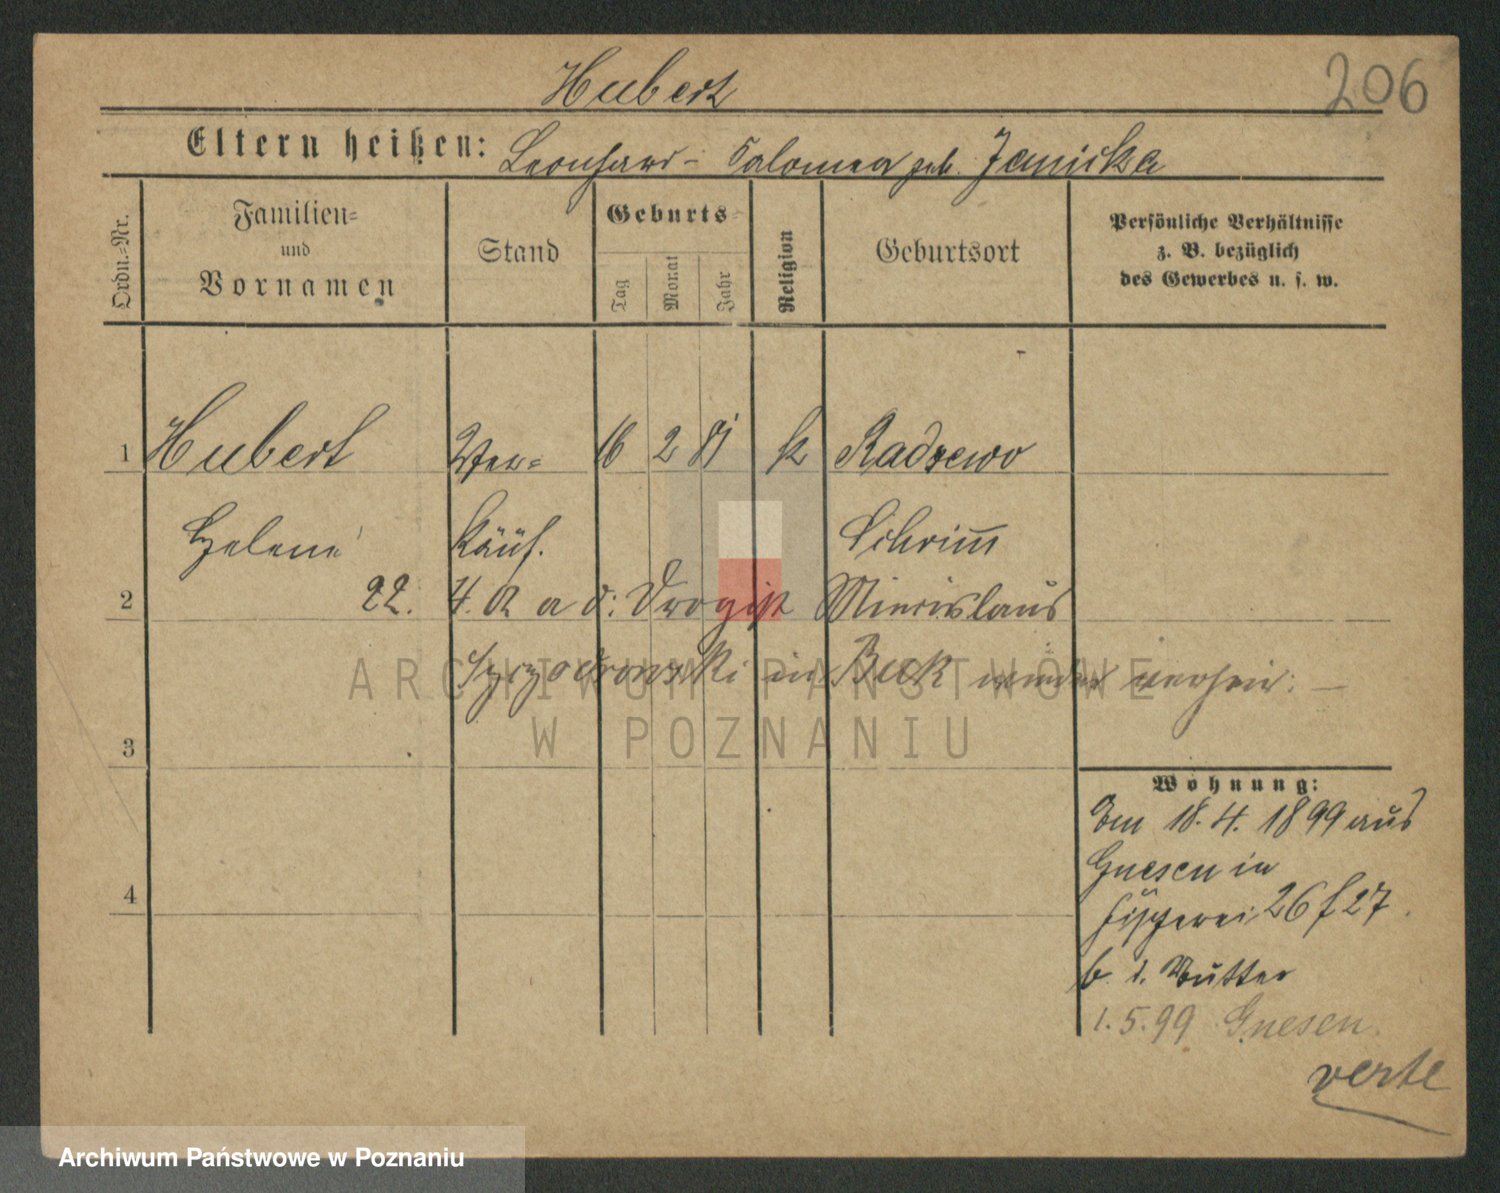 Hubert
206
Eltern heißen: Leonhard - Salomea geb. Janicka
Ordn.-Nr.
Familien-
und
Vornamen
Stand
Geburts-
Tag
Monat
Jahr
Religion
Geburtsort
Persönliche Verhältnisse
z. B. bezüglich
des Gewerbes u. s. w.
1 Hubert Ver- 16 2 81 k Radzewo
Helene Käuf. Schrimm
2 22. 4. a d. Drogist Miecislaus
in Buk wieder verheir.
3
Wohnung:
Am 18. 4. 1899 aus
Gnesen in
Fischerei 26 f 27
4
b. d. Mutter
1. 5. 99 Gnesen.
verte
ARCHIWUM PAŃSTWOWE
W POZNANIU
Archiwum Państwowe w Poznaniu